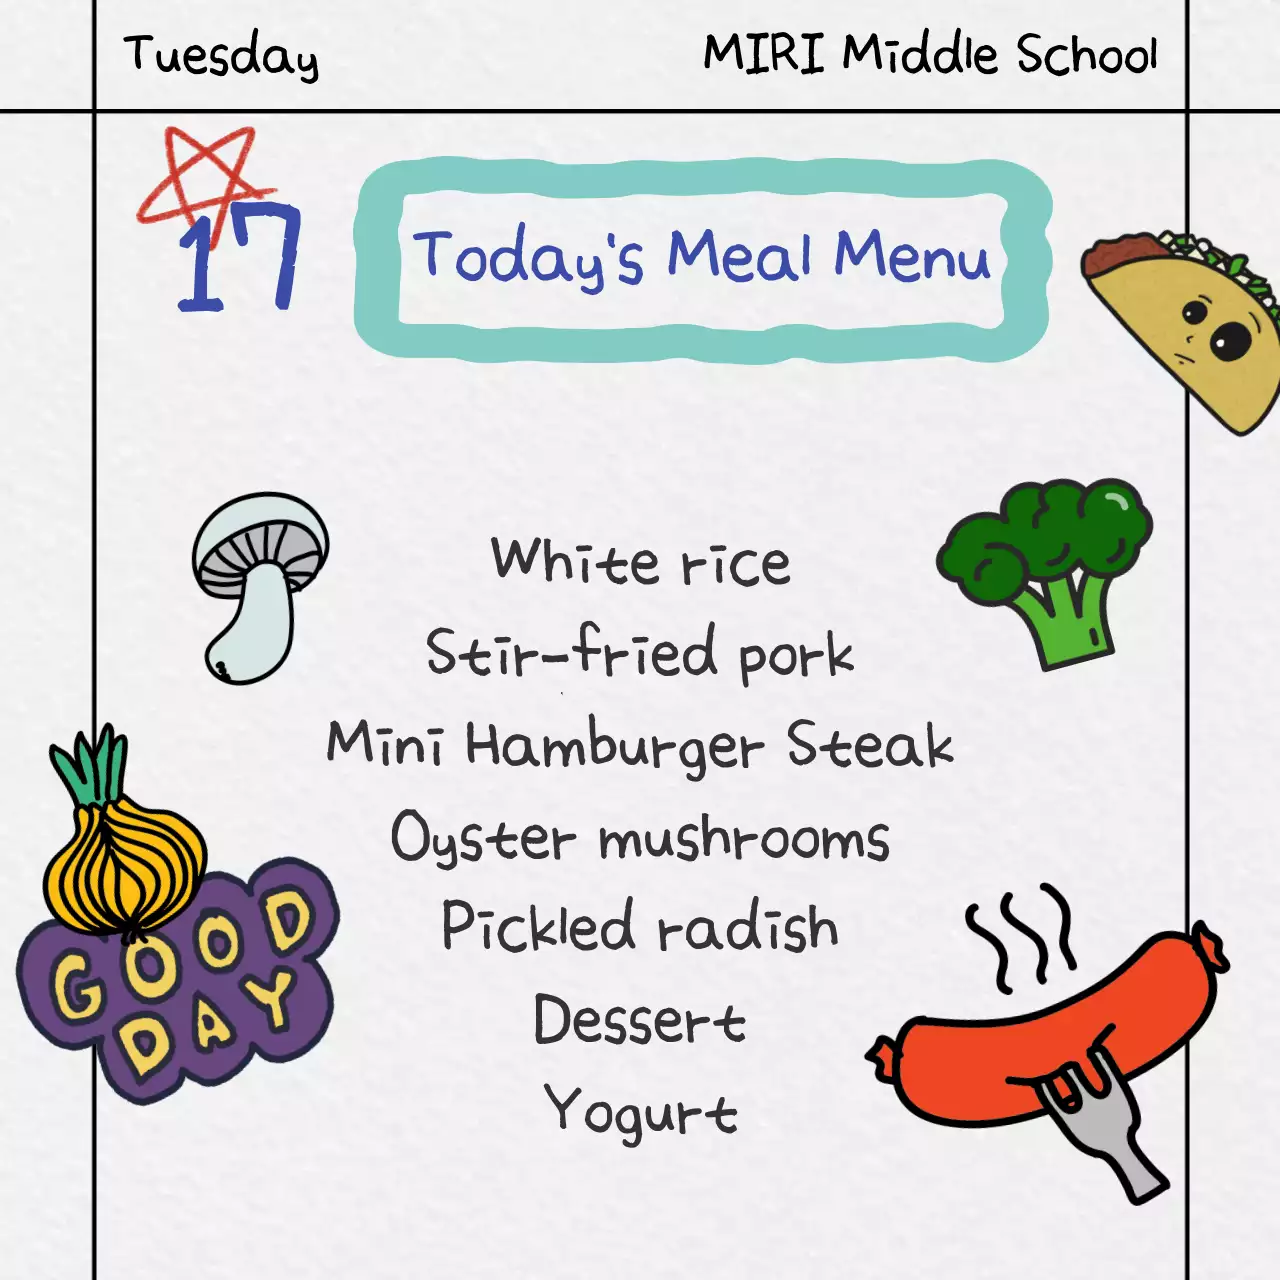 Tuesday
MIRI Middle School
17
Today's Meal Menu
White rice
Stir-fried pork
Mini Hamburger Steak
Oyster mushrooms
Pickled radish
Dessert
Yogurt
GOOD
DAY